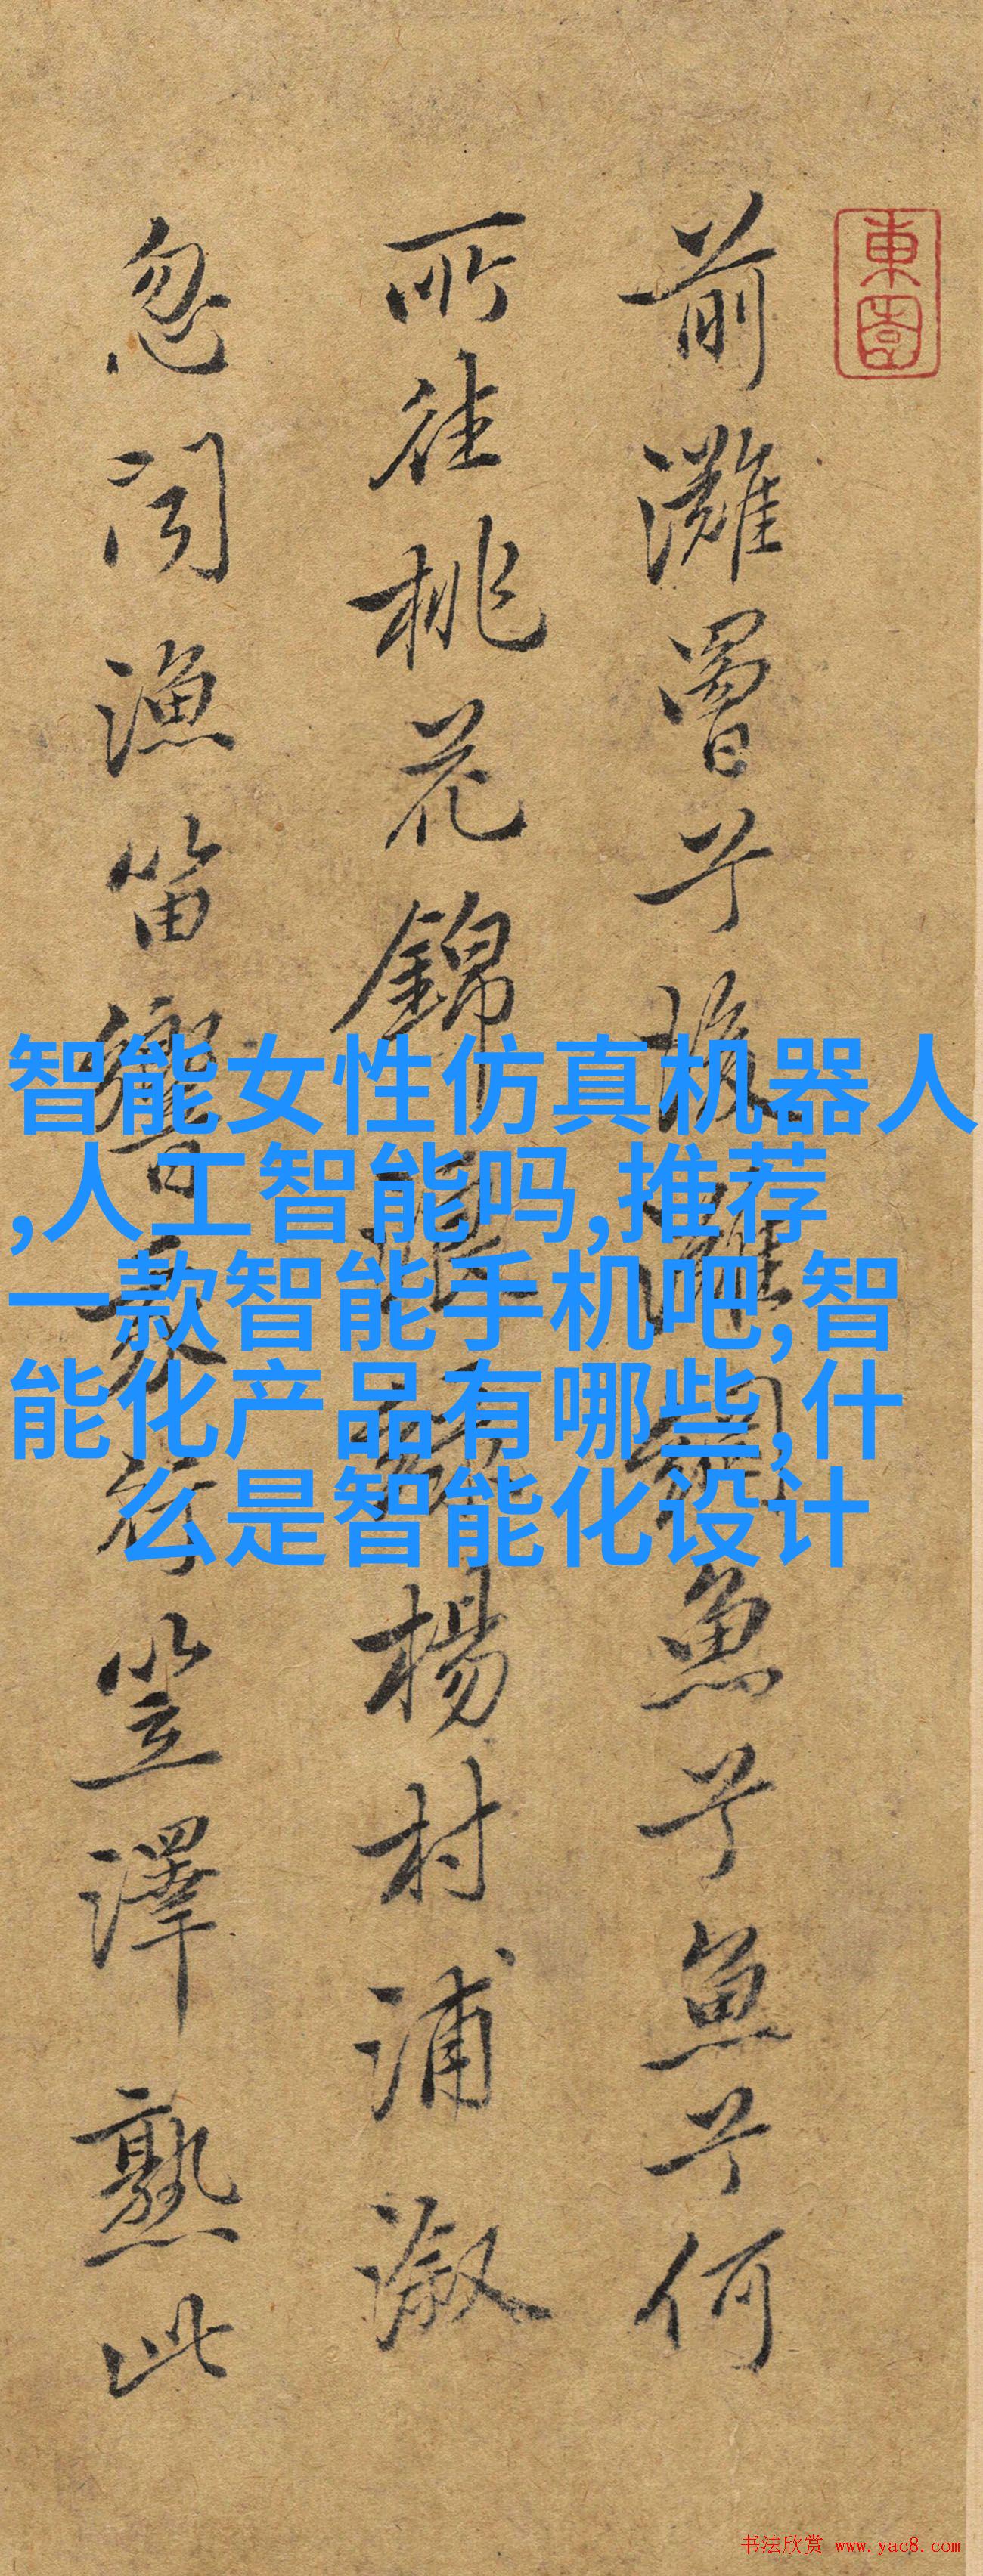 東園
前灘罾兮後灘網魚兮魚兮何
所往桃花錦
楊村浦溆
忽聞漁笛響
笠澤熟此
智能女性仿真机器人
,人工智能吗,推荐
一款智能手机吧,智
能化产品有哪些,什
么是智能化设计
书法欣赏 www.yac8.com